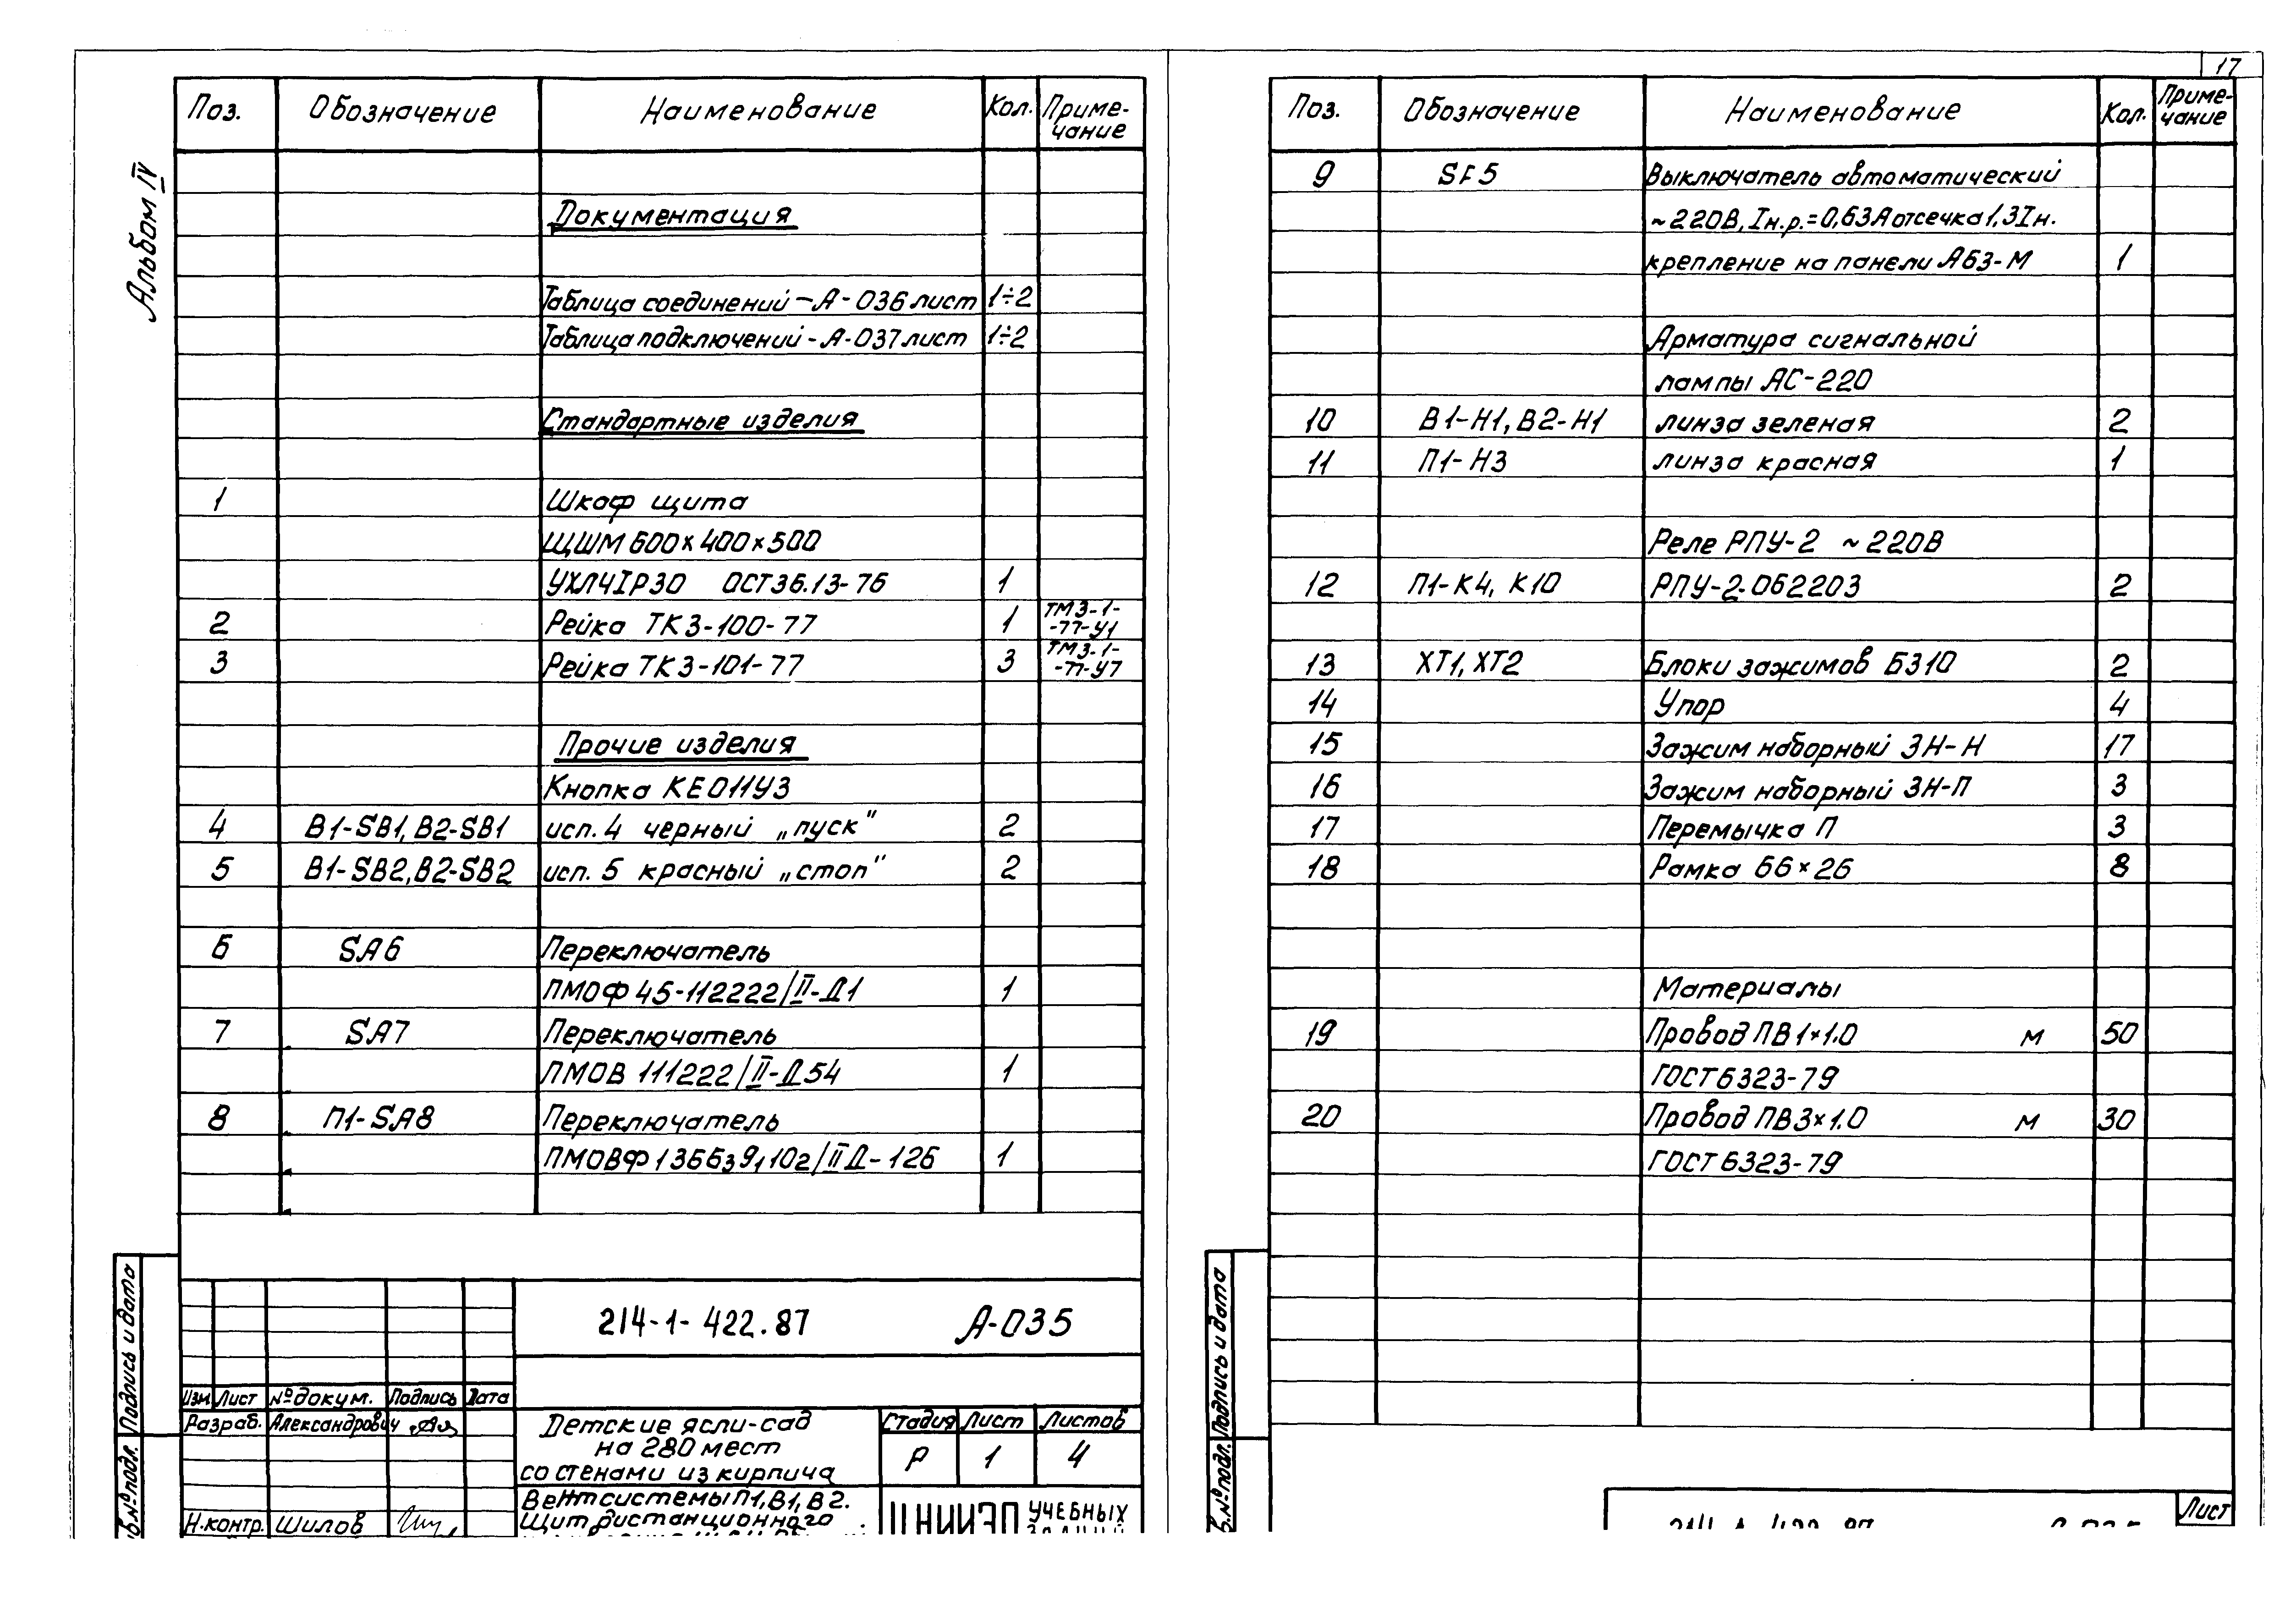 17
Альбом IV
Поз. Обозначение Наименование Кол. Приме-
чание
Документация
Таблица соединений – А-036 лист 1÷2
Таблица подключений - А-037 лист 1÷2
Стандартные изделия
1 Шкаф щита
ЩШМ 600×400×500
УХЛ4IP30 ОСТ36.13-76 1
2 Рейка ТК3-100-77 1 ТМ3-1-
-77-У1
3 Рейка ТК3-101-77 3 ТМ3-1-
-77-У7
Прочие изделия
Кнопка КЕ011У3
4 В1-SB1, В2-SB1 исп. 4 черный „пуск" 2
5 В1-SB2, В2-SB2 исп. 5 красный „стоп" 2
6 SA6 Переключатель
ПМОФ 45-112222/II-Д1 1
7 SA7 Переключатель
ПМОВ 111222/II-Д54 1
8 П1-SA8 Переключатель
ПМОВФ 1366391102/IIД-126 1
214-1-422.87 А-035
Изм Лист № докум. Подпись Дата
Разраб. Александрович
Детские ясли-сад
на 280 мест
со стенами из кирпича
Стадия Лист Листов
Р 1 4
Вентсистемы П1, В1, В2.
Щит дистанционного
Н.контр. Шилов
ЦНИИЭП УЧЕБНЫХ
ЗДАНИЙ
Подпись и дата
№ подл.
Поз. Обозначение Наименование Кол. Приме-
чание
9 SF5 Выключатель автоматический
~220В, Iн.р.=0,63А отсечка 1,3Iн.
крепление на панели А63-М 1
Арматура сигнальной
лампы АС-220
10 В1-Н1, В2-Н1 линза зеленая 2
11 П1-Н3 линза красная 1
Реле РПУ-2 ~220В
12 П1-К4, К10 РПУ-2-062203 2
13 ХТ1, ХТ2 Блоки зажимов БЗ10 2
14 Упор 4
15 Зажим наборный ЗН-Н 17
16 Зажим наборный ЗН-П 3
17 Перемычка П 3
18 Рамка 66×26 8
Материалы
19 Провод ПВ 1×1.0 м 50
ГОСТ 6323-79
20 Провод ПВ3×1.0 м 30
ГОСТ 6323-79
Подпись и дата
№ подл.
Лист
214-1-422.87